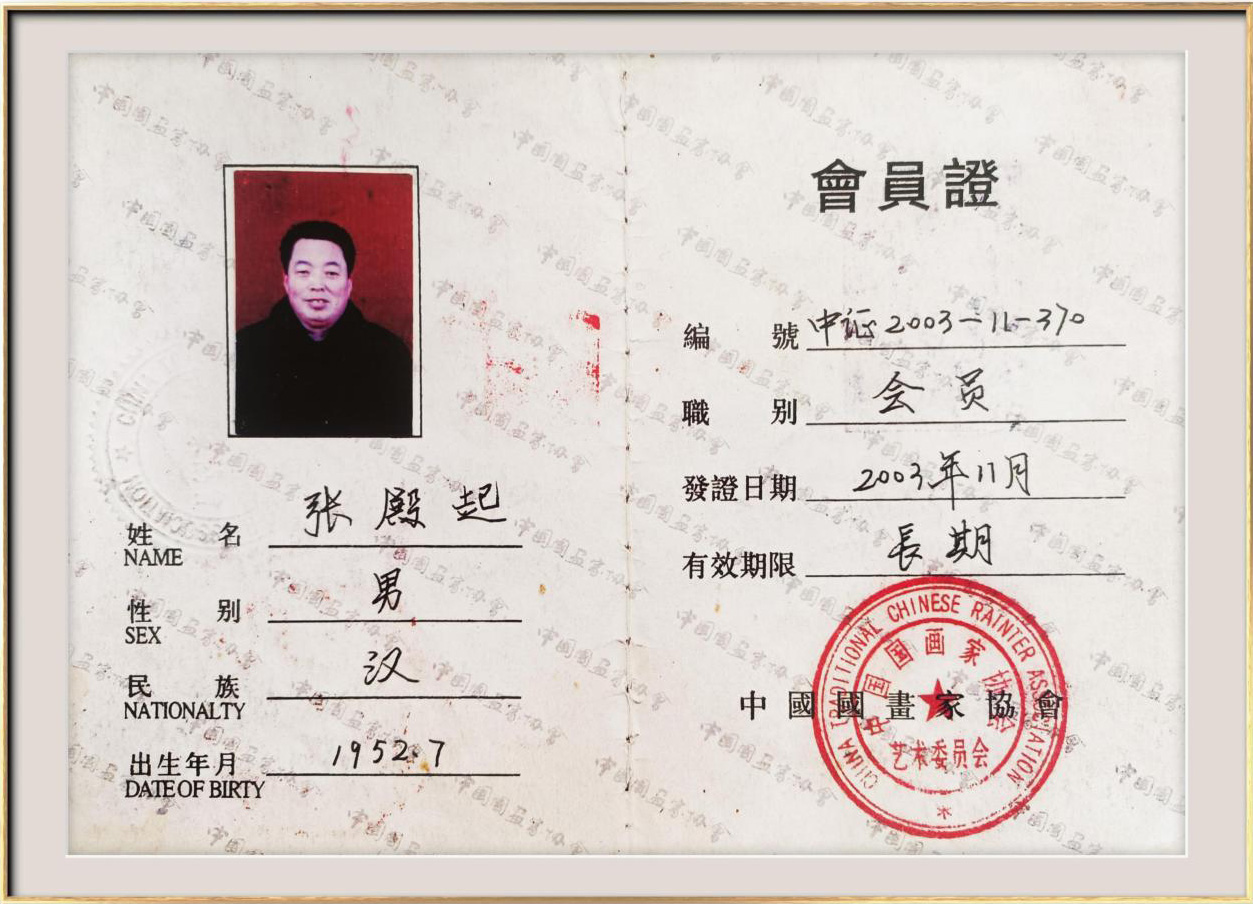 姓 名 张殿起
NAME
性 别 男
SEX
民 族 汉
NATIONALTY
出生年月 1952.7
DATE OF BIRTY
會員證
編 號 中证2003-11-370
職 别 会员
發證日期 2003年11月
有效期限 長期
中國國畫家協會
CHINA TRADITIONAL CHINESE RAINTER ASSOCIATION
中国国画家协会
艺术委员会